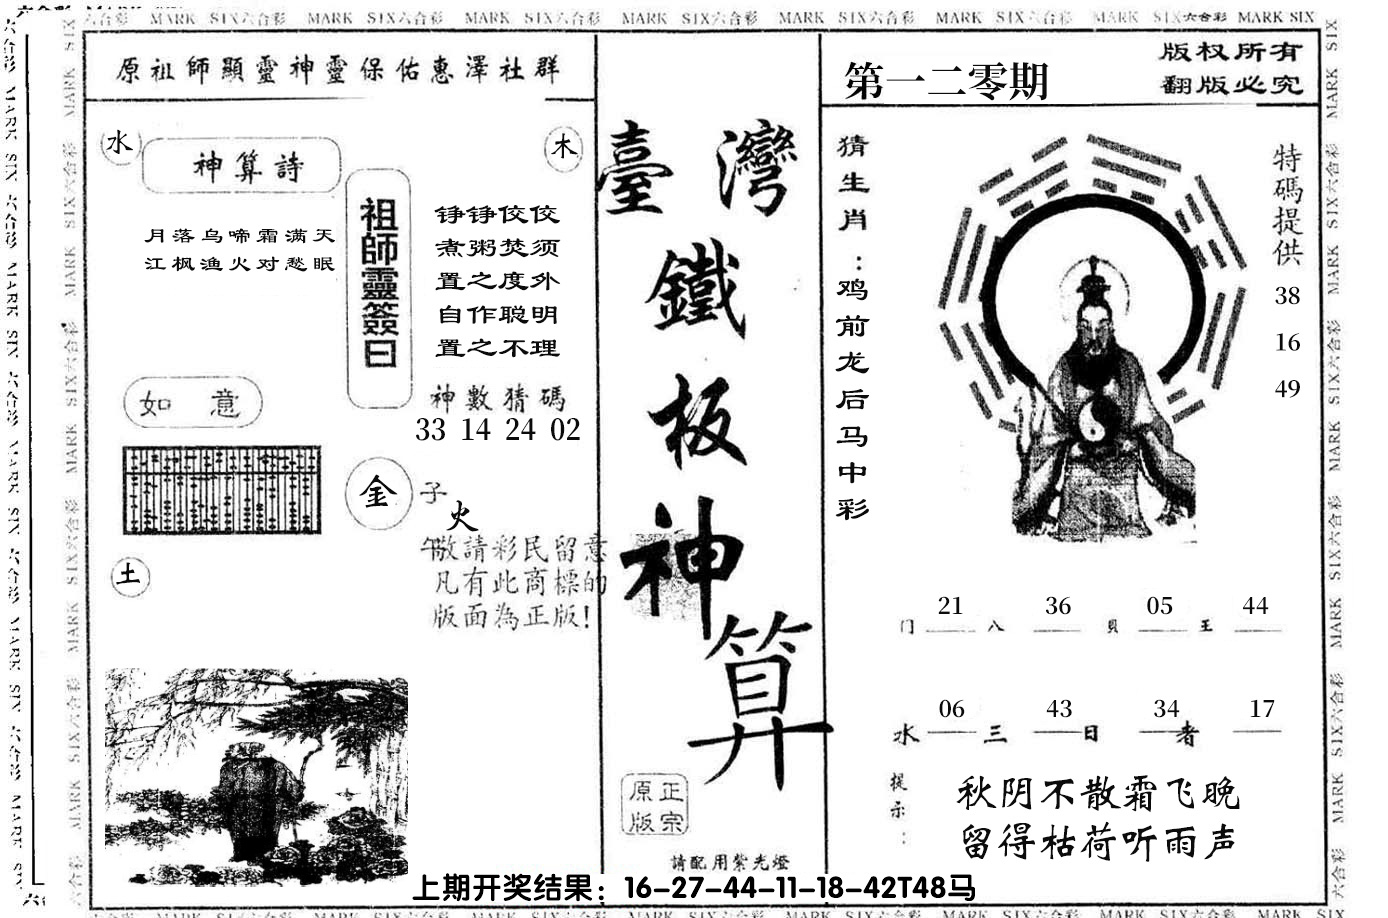 六合彩 MARK SIX六合彩 MARK SIX六合彩 MARK SIX六合彩 MARK SIX六合彩 MARK SIX六合彩 MARK SIX六合彩 MARK SIX六合彩 MARK SIX
原祖師顯靈神靈保佑惠澤社群
水
神算詩
木
月落乌啼霜满天
江枫渔火对愁眠
祖師靈簽曰
铮铮佼佼
煮粥焚须
置之度外
自作聪明
置之不理
神數猜碼
33 14 24 02
如 意
金
子
火
午
敬請彩民留意
凡有此商標的
版面為正版!
土
臺灣
鐵
板
神
算
正宗
原版
請配用紫光燈
第一二零期
版权所有
翻版必究
猜生肖:鸡前龙后马中彩
特碼提供
38
16
49
21 36 05 44
门 八 貝 王
06 43 34 17
水 三 日 者
提示:
秋阴不散霜飞晚
留得枯荷听雨声
上期开奖结果：16-27-44-11-18-42T48马